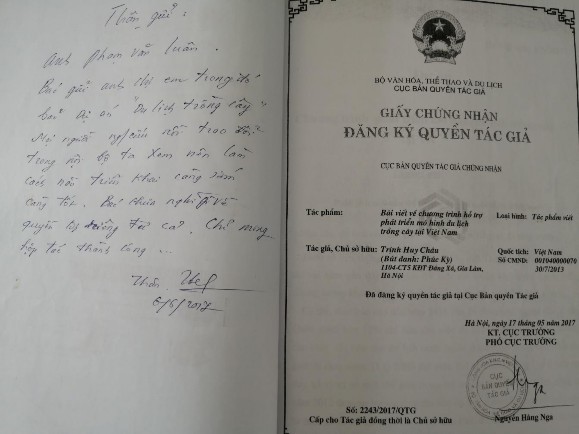 Thân gửi:
Anh Phạm Văn Luân.
Bác gửi anh chị em trong đó
dự án "Du lịch trồng cây"
Mọi người ng/cứu rồi trao đổi
trong nội bộ ta xem nên làm
cách nào triển khai càng sớm
càng tốt. Bác chưa nghĩ gì về
quyền lợi riêng tư cả. Chỉ mong
hợp tác thành công.
Thân.
6/6/2017
BỘ VĂN HÓA, THỂ THAO VÀ DU LỊCH
CỤC BẢN QUYỀN TÁC GIẢ
GIẤY CHỨNG NHẬN
ĐĂNG KÝ QUYỀN TÁC GIẢ
CỤC BẢN QUYỀN TÁC GIẢ CHỨNG NHẬN
Tác phẩm: Bài viết về chương trình hỗ trợ Loại hình: Tác phẩm viết
phát triển mô hình du lịch
trồng cây tại Việt Nam
Tác giả, Chủ sở hữu: Trịnh Huy Châu Quốc tịch: Việt Nam
(Bút danh: Phúc Kỳ) Số CMND: 001040000070
1104-CT5 KĐT Đặng Xá, Gia Lâm, 30/7/2013
Hà Nội
Đã đăng ký quyền tác giả tại Cục Bản quyền Tác giả
Hà Nội, ngày 17 tháng 05 năm 2017
KT. CỤC TRƯỞNG
PHÓ CỤC TRƯỞNG
CỤC
BẢN QUYỀN
TÁC GIẢ
Số: 2243/2017/QTG
Cấp cho Tác giả đồng thời là Chủ sở hữu Nguyễn Hằng Nga